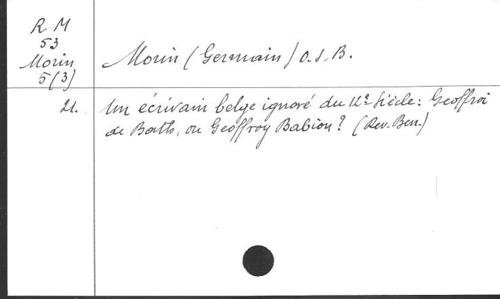 R M
53
Morin
5(3)
Morin (Germain) O.S.B.
21. Un écrivain belge ignoré du 12e siècle: Geoffroi
de Bath, ou Geoffroy Babion? (Rev. Ben.)